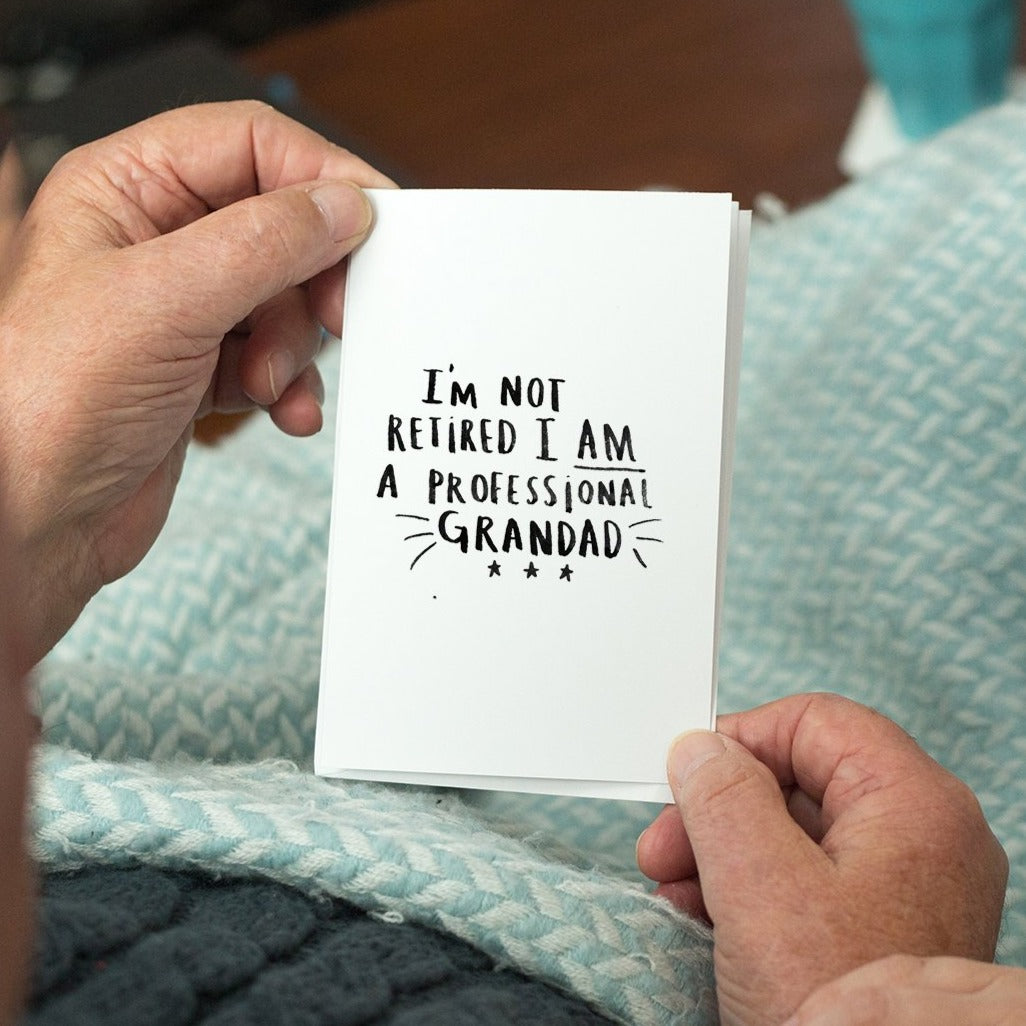 I'M NOT
RETIRED I AM
A PROFESSIONAL
GRANDAD